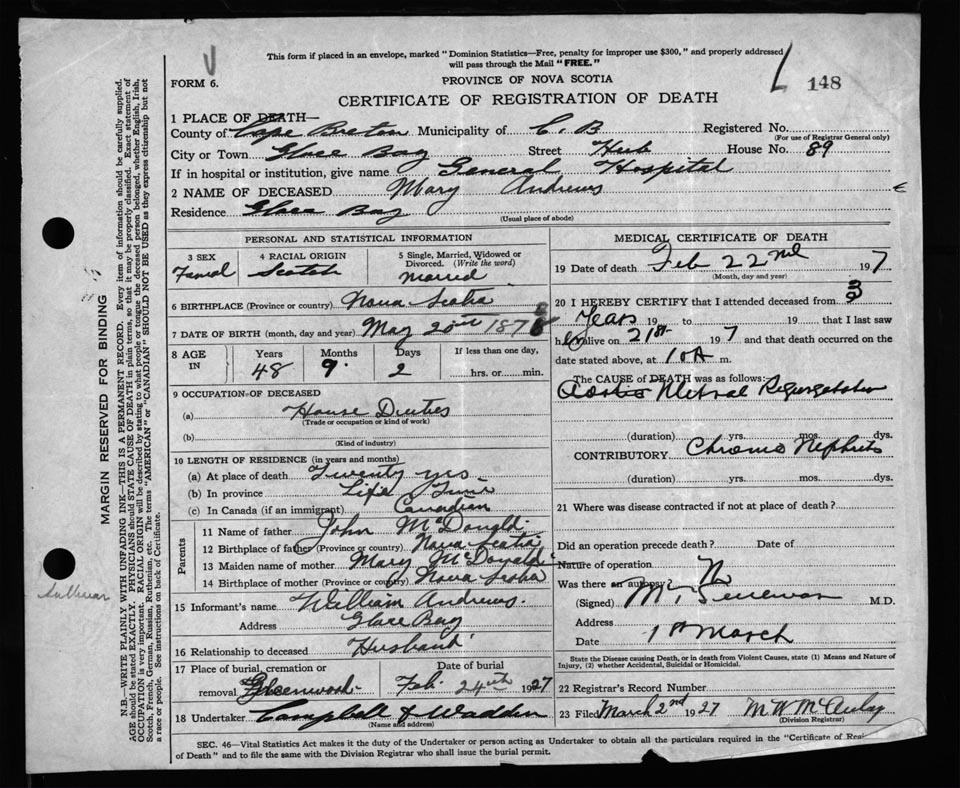 This form if placed in an envelope, marked "Dominion Statistics—Free, penalty for improper use $300," and properly addressed
will pass through the Mail "FREE."
FORM 6.
PROVINCE OF NOVA SCOTIA
148
CERTIFICATE OF REGISTRATION OF DEATH
1 PLACE OF DEATH—
County of Cape Breton Municipality of C. B Registered No.
(For use of Registrar General only)
City or Town Glace Bay Street Hub House No. 89
If in hospital or institution, give name General Hospital
2 NAME OF DECEASED Mary Andrews
Residence Glace Bay
(Usual place of abode)
PERSONAL AND STATISTICAL INFORMATION
3 SEX 4 RACIAL ORIGIN 5 Single, Married, Widowed or
Divorced. (Write the word)
Femal Scotch Married
6 BIRTHPLACE (Province or country) Nova Scotia
7 DATE OF BIRTH (month, day and year) May 20th 1878
8 AGE IN Years Months Days If less than one day,
48 9 2 hrs. or min.
9 OCCUPATION OF DECEASED
(a) House Duties
(Trade or occupation or kind of work)
(b)
(Kind of industry)
10 LENGTH OF RESIDENCE (in years and months)
(a) At place of death Twenty yrs
(b) In province Life Time
(c) In Canada (if an immigrant) Canadian
Parents
11 Name of father John McDonald
12 Birthplace of father (Province or country) Nova Scotia
13 Maiden name of mother Mary McDonald
14 Birthplace of mother (Province or country) Nova Scotia
15 Informant's name William Andrews.
Address Glace Bay
16 Relationship to deceased Husband
17 Place of burial, cremation or Date of burial
removal Greenwood Feb. 24th 1927
18 Undertaker Campbell & Wadden
(Name and address)
MEDICAL CERTIFICATE OF DEATH
19 Date of death Feb 22nd 197
(Month, day and year)
20 I HEREBY CERTIFY that I attended deceased from 3
years 19 to 19 that I last saw
her alive on 21st 197 and that death occurred on the
date stated above, at 10 A m.
The CAUSE of DEATH was as follows:
Aortic Mitral Regurgitation
(duration) yrs. mos. dys.
CONTRIBUTORY Chronic Nephritis
(duration) yrs. mos. dys.
21 Where was disease contracted if not at place of death?
Did an operation precede death? Date of
Nature of operation
Was there an autopsy? No
(Signed) M.D.
Address
Date 1st March
State the Disease causing Death, or in death from Violent Causes, state (1) Means and Nature of
Injury, (2) whether Accidental, Suicidal or Homicidal.
22 Registrar's Record Number
23 Filed March 2nd 1927 M W McAulay
(Division Registrar)
SEC. 46—Vital Statistics Act makes it the duty of the Undertaker or person acting as Undertaker to obtain all the particulars required in the "Certificate of
of Death" and to file the same with the Division Registrar who shall issue the burial permit.
MARGIN RESERVED FOR BINDING
N.B.—WRITE PLAINLY WITH UNFADING INK—THIS IS A PERMANENT RECORD. Every item of information should be carefully supplied.
AGE should be stated EXACTLY. PHYSICIANS should STATE CAUSE OF DEATH in plain terms, so that it may be properly classified. Exact statement of
OCCUPATION is very important. RACIAL ORIGIN will be described by stating to what people or tongue the deceased person belonged, whether English, Irish,
Scotch, French, German, Russian, Ruthenian, etc. The terms "AMERICAN" or "CANADIAN" SHOULD NOT BE USED as they express citizenship but not
a race or people. See instructions on back of Certificate.
Sullivan